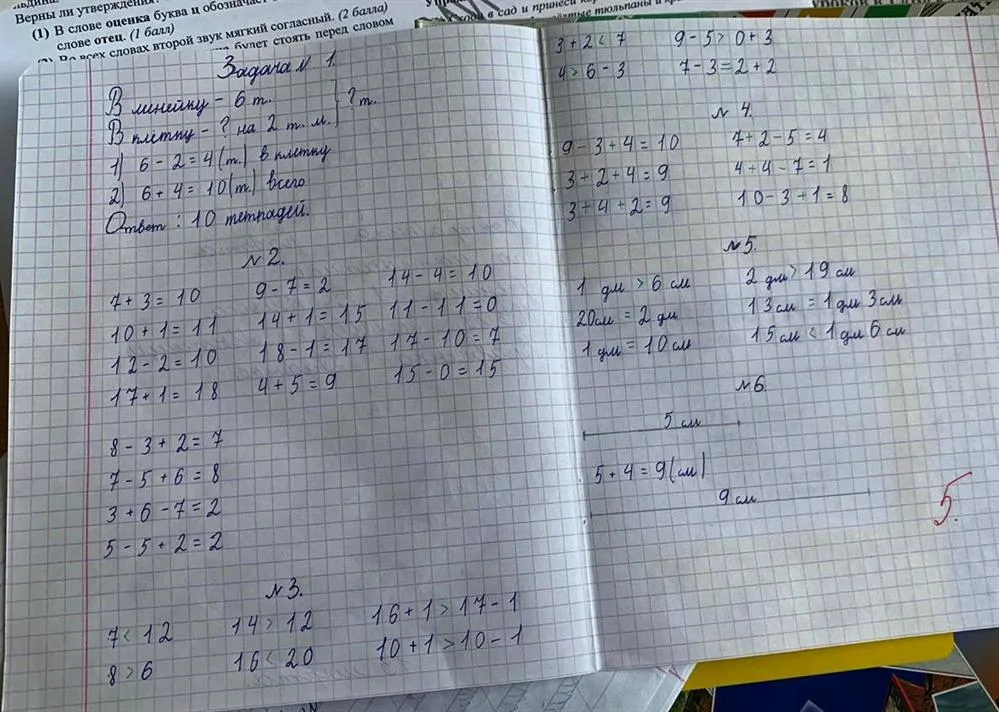 Верны ли утверждения?
(1) В слове оценка буква ц обозначает
слове отец. (1 балл)
Во всех словах второй звук мягкий согласный. (2 балла)
будет стоять перед словом
сад и принеси
тюльпаны и
Задача N 1.
В линейку - 6 т.
} ? т.
В клетку - ? на 2 т. м.
1) 6 - 2 = 4 (т.) в клетку
2) 6 + 4 = 10 (т.) всего
Ответ : 10 тетрадей.
N 2.
7 + 3 = 10 9 - 7 = 2 14 - 4 = 10
10 + 1 = 11 14 + 1 = 15 11 - 11 = 0
12 - 2 = 10 18 - 1 = 17 17 - 10 = 7
17 + 1 = 18 4 + 5 = 9 15 - 0 = 15
8 - 3 + 2 = 7
7 - 5 + 6 = 8
3 + 6 - 7 = 2
5 - 5 + 2 = 2
N 3.
7 < 12 14 > 12 16 + 1 > 17 - 1
8 > 6 16 < 20 10 + 1 > 10 - 1
3 + 2 < 7 9 - 5 > 0 + 3
4 > 6 - 3 7 - 3 = 2 + 2
N 4.
9 - 3 + 4 = 10 7 + 2 - 5 = 4
3 + 2 + 4 = 9 4 + 4 - 7 = 1
3 + 4 + 2 = 9 10 - 3 + 1 = 8
N 5.
1 дм > 6 см 2 дм > 19 см
20 см = 2 дм 13 см = 1 дм 3 см
1 дм = 10 см 15 см < 1 дм 6 см
N 6.
5 см
5 + 4 = 9 (см)
9 см
5.